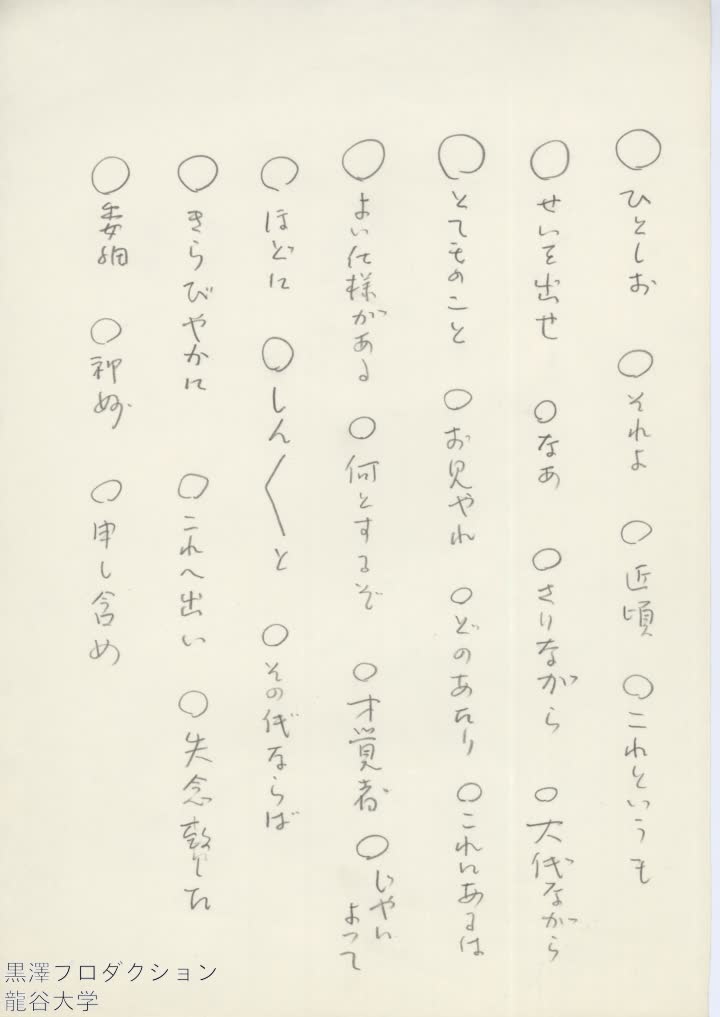 ○ひとしお ○それよ ○近頃 ○これというも
○せいを出せ ○なあ ○さりながら ○大代ながら
○とてものこと ○お見やれ ○どのあたり ○これにあるは
○よい仕様がある ○何とするぞ ○才覚者 ○じゃに
よって
○ほどに ○しん〱と ○その代ならば
○きらびやかに ○これへ出い ○失念致した
○委細 ○神妙 ○申し含め
黒澤プロダクション
龍谷大学